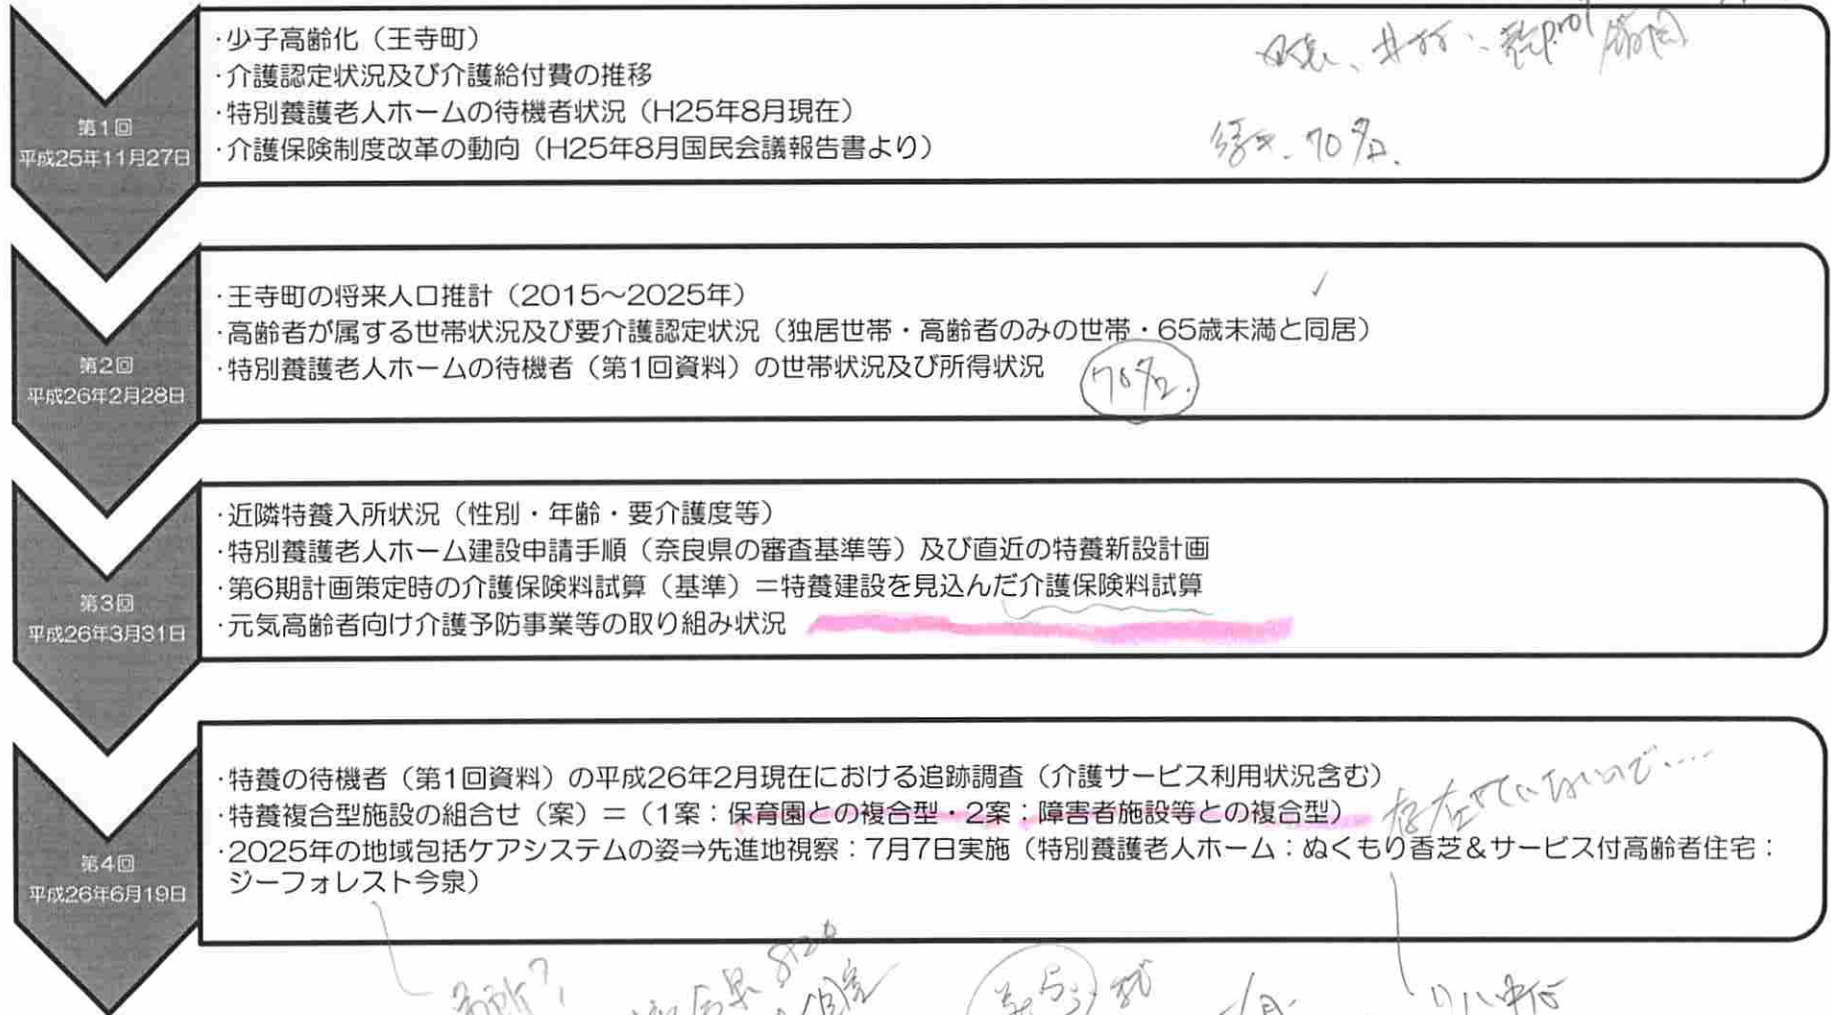 第1回
平成25年11月27日
・少子高齢化（王寺町）
・介護認定状況及び介護給付費の推移
・特別養護老人ホームの待機者状況（H25年8月現在）
・介護保険制度改革の動向（H25年8月国民会議報告書より）
70名.
第2回
平成26年2月28日
・王寺町の将来人口推計（2015～2025年）
・高齢者が属する世帯状況及び要介護認定状況（独居世帯・高齢者のみの世帯・65歳未満と同居）
・特別養護老人ホームの待機者（第1回資料）の世帯状況及び所得状況
70名.
第3回
平成26年3月31日
・近隣特養入所状況（性別・年齢・要介護度等）
・特別養護老人ホーム建設申請手順（奈良県の審査基準等）及び直近の特養新設計画
・第6期計画策定時の介護保険料試算（基準）＝特養建設を見込んだ介護保険料試算
・元気高齢者向け介護予防事業等の取り組み状況
第4回
平成26年6月19日
・特養の待機者（第1回資料）の平成26年2月現在における追跡調査（介護サービス利用状況含む）
・特養複合型施設の組合せ（案）＝（1案：保育園との複合型・2案：障害者施設等との複合型）
・2025年の地域包括ケアシステムの姿⇒先進地視察：7月7日実施（特別養護老人ホーム：ぬくもり香芝＆サービス付高齢者住宅：
ジーフォレスト今泉）